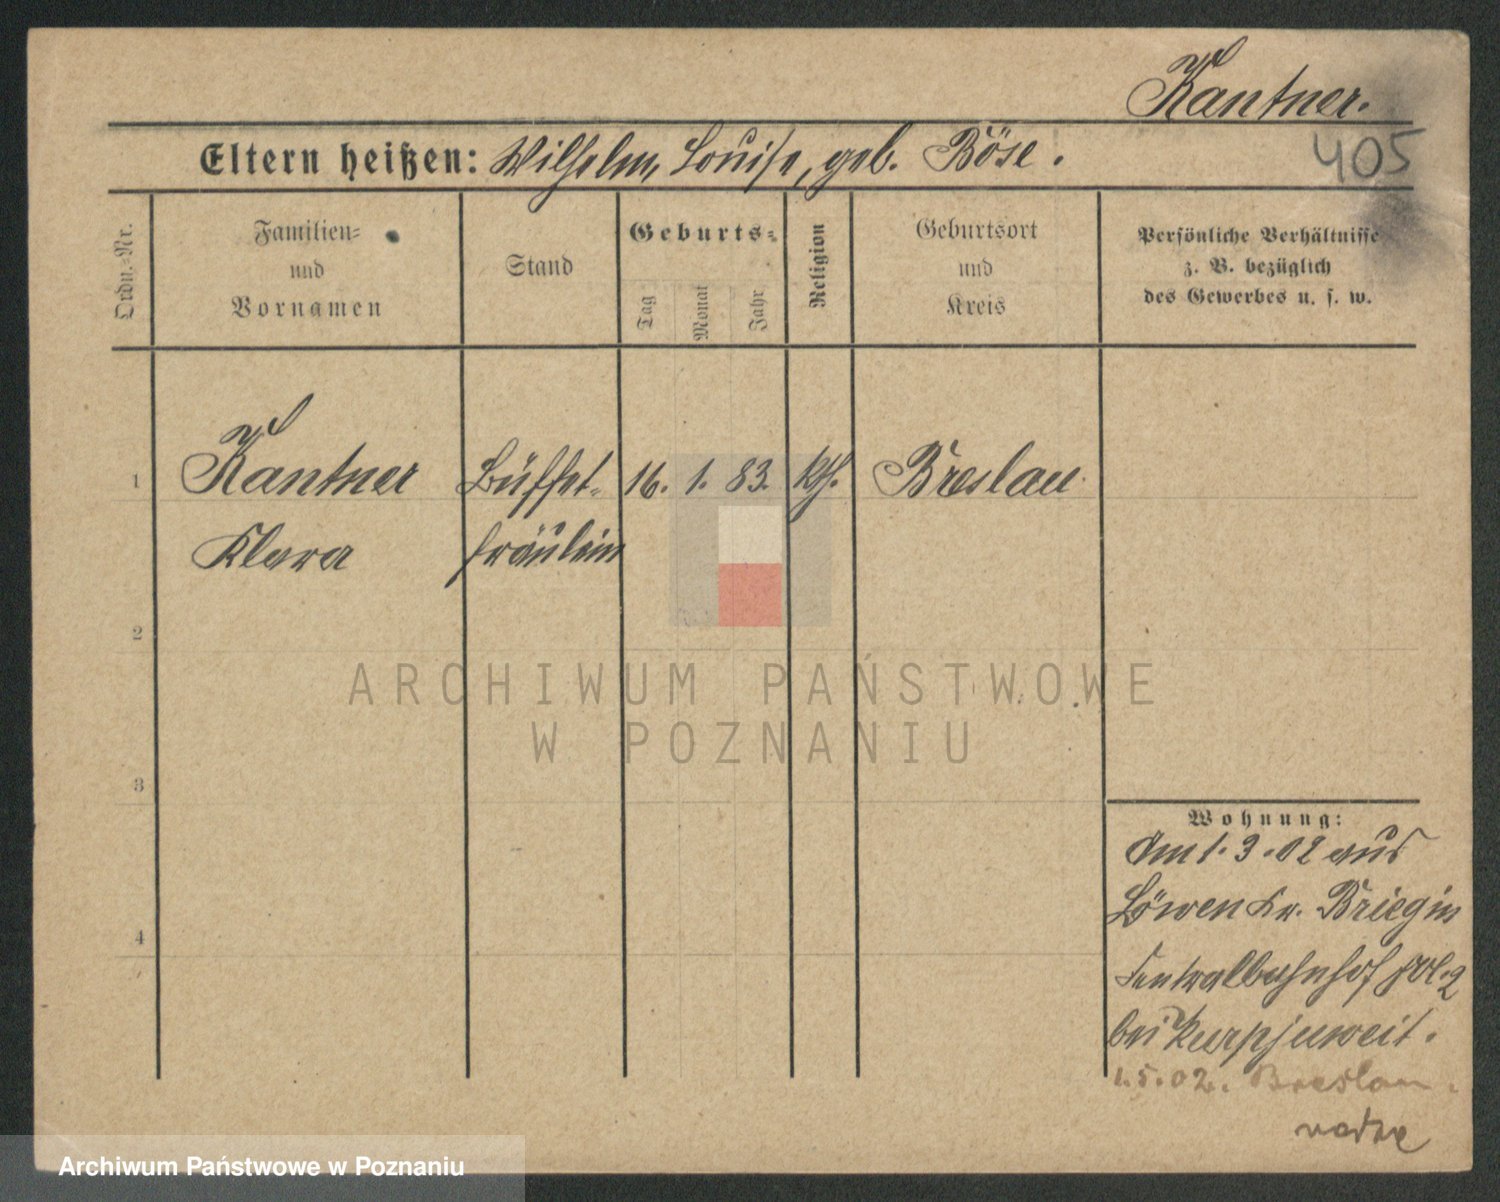 Kantner.
405
Eltern heißen: Wilhelm, Louise, geb. Böse.
Ordn.-Nr.
Familien- und Vornamen
Stand
Geburts-
Tag
Monat
Jahr
Religion
Geburtsort und Kreis
Persönliche Verhältnisse
z. B. bezüglich
des Gewerbes u. s. w.
1 Kantner Büffet- 16. 1. 83. kth. Breslau
Klara fräulein
2
3
4
Wohnung:
Am 1.3.02 aus
Löwen Kr. Brieg in
Centralbahnhof
bei Kurpjuweit.
1.5.02. Breslau.
ARCHIWUM PAŃSTWOWE
W POZNANIU
Archiwum Państwowe w Poznaniu